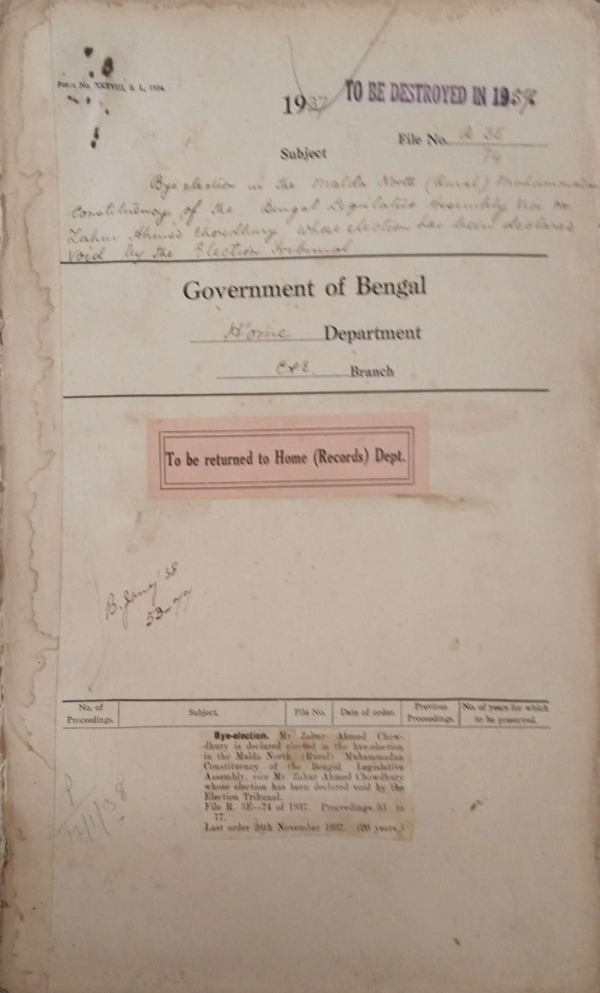 Form No. XXXVIII, S. L., 1934.
1937 TO BE DESTROYED IN 195
File No. R 3E
74
Subject
Bye election in the Malda North (Rural) Muhammadan
Constituency of the Bengal Legislative Assembly vice Mr
Zahur Ahmed Chowdhury whose election has been declared
void by the Election Tribunal
Government of Bengal
Home Department
C & E. Branch
To be returned to Home (Records) Dept.
B. Jany '38
53-77
No. of Proceedings. Subject. File No. Date of order. Previous Proceedings. No. of years for which to be preserved.
Bye-election. Mr. Zahur Ahmed Chow-
dhury is declared elected in the bye-election
in the Malda North (Rural) Muhammadan
Constituency of the Bengal Legislative
Assembly, vice Mr. Zahur Ahmed Chowdhury
whose election has been declared void by the
Election Tribunal.
File R. 3E—74 of 1937. Proceedings 53 to
77.
Last order 24th November 1937. (20 years.)
P
12/1/38